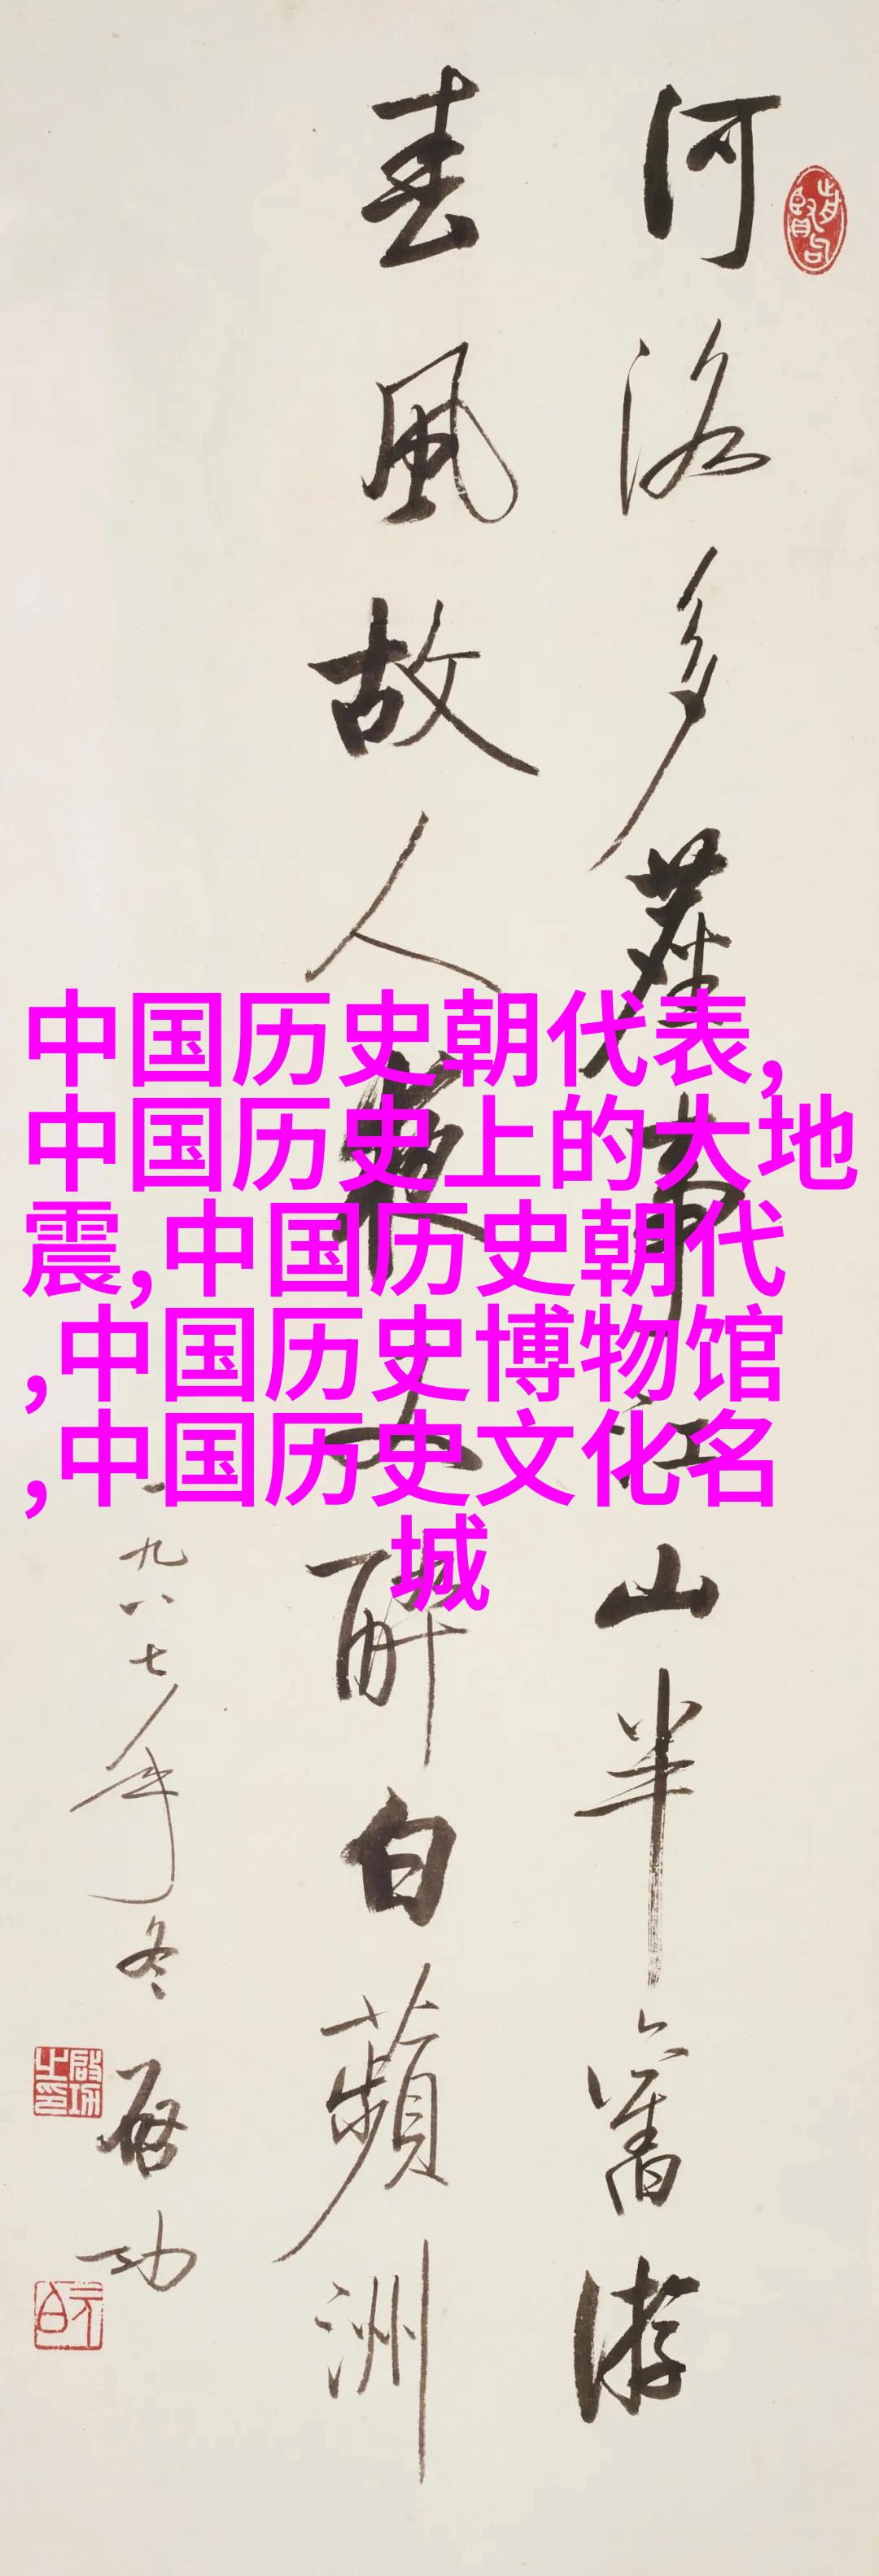 河洛多塵事江山半舊游
春風故人夜又醉白蘋洲
一九八七年冬 啟功
中国历史朝代表,
中国历史上的大地
震,中国历史朝代
,中国历史博物馆
,中国历史文化名
城